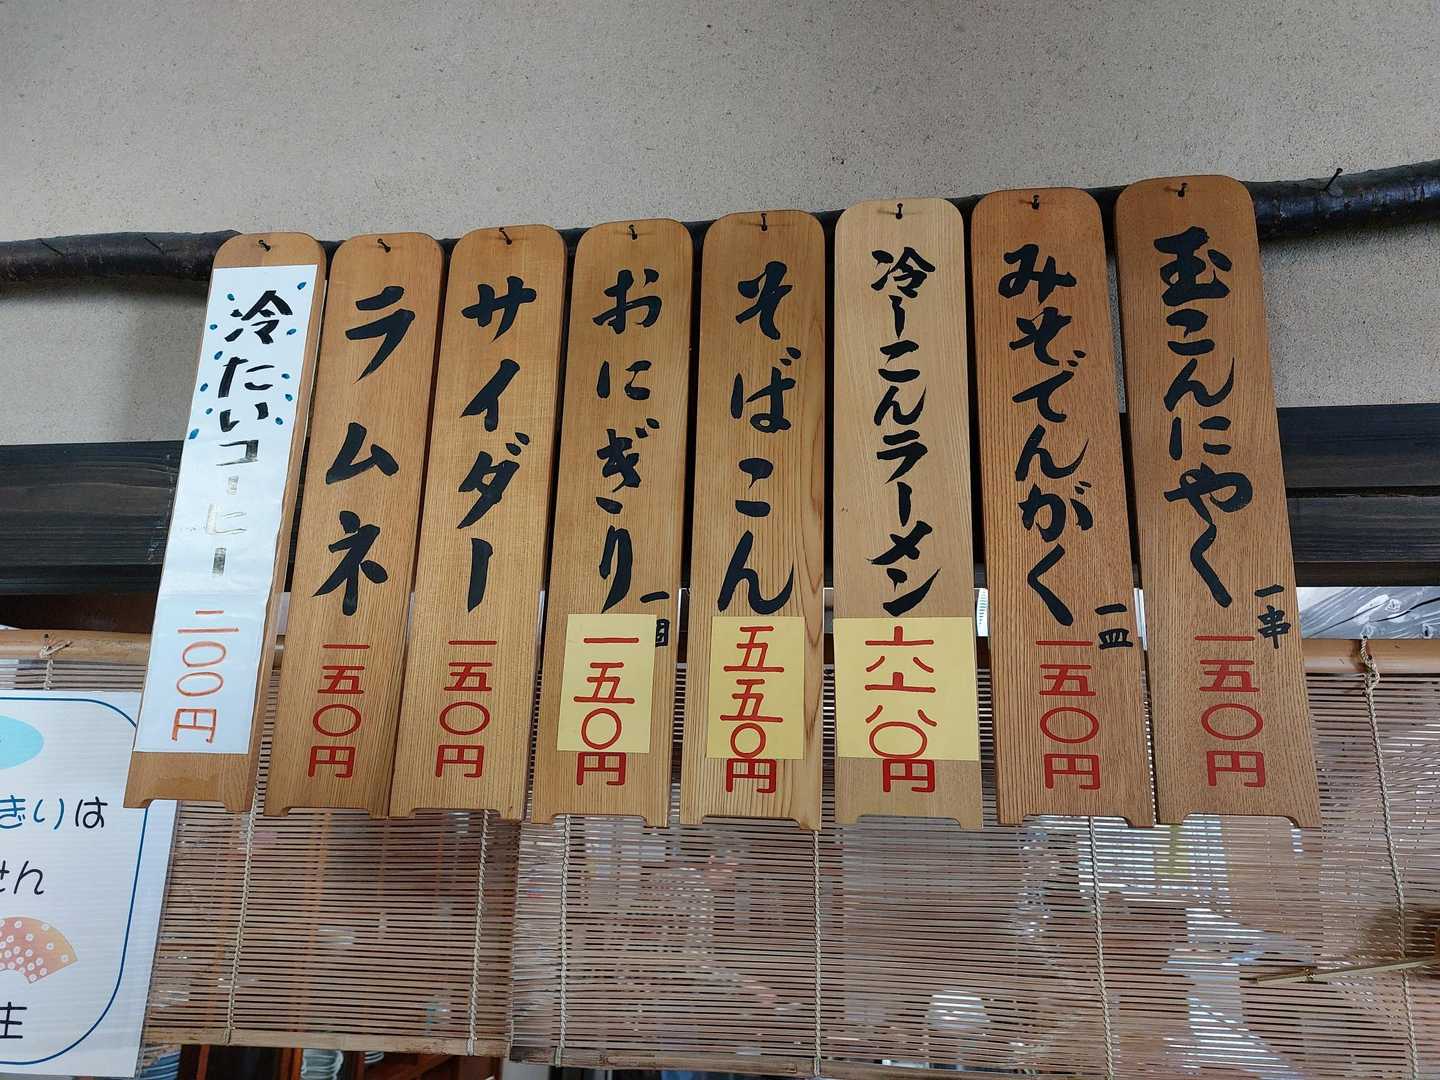 玉こんにゃく
一串
一五〇円
みそでんがく
一皿
一五〇円
冷ーこんラーメン
六六〇円
そばこん
五五〇円
おにぎり
一個
一五〇円
サイダー
一五〇円
ラムネ
一五〇円
冷たいコーヒー
二〇〇円
ぎりは
せん
主